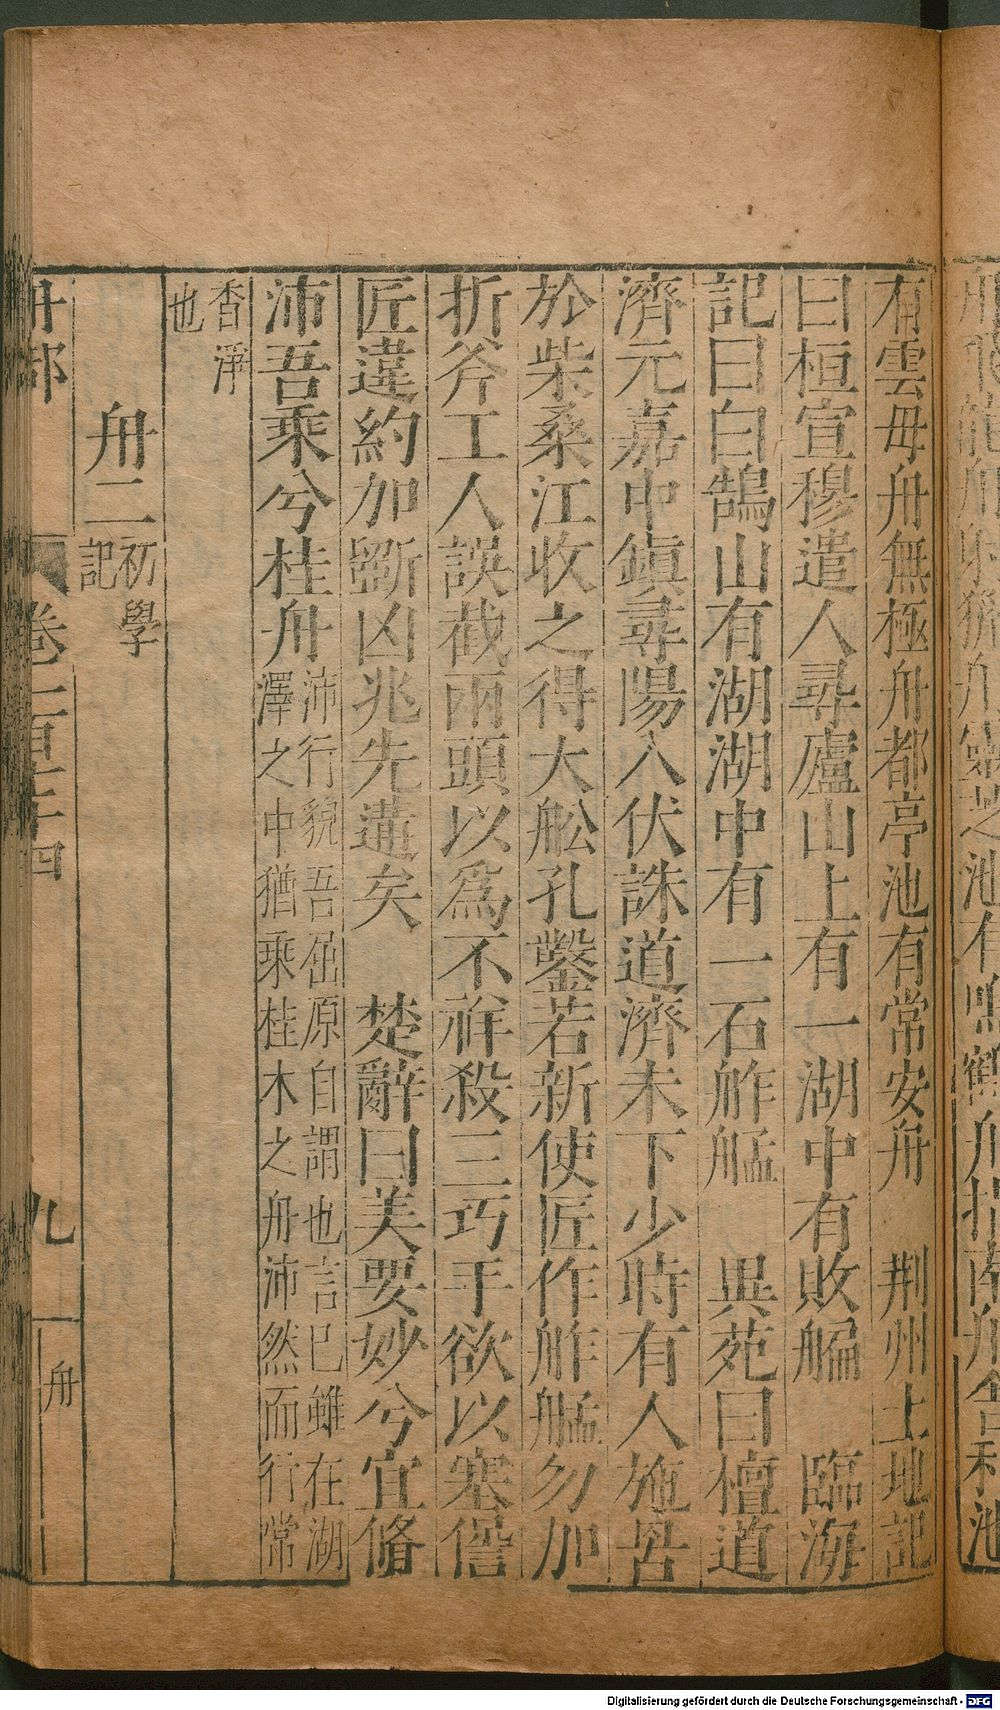 有雲毋舟無極舟都亭池有常安舟　荆州土地記
曰桓宣穆遣人尋廬山上有一湖中有敗艑　臨海
記曰白鵠山有湖湖中有一石舴艋　異苑曰檀道
濟元嘉中鎮尋陽入伏誅道濟未下少時有人施罟
於柴桑江收之得大舩孔鑿若新使匠作舴艋勿加
折斧工人誤截兩頭以爲不祥殺三巧手欲以塞僭
匠違約加斲凶兆先遘矣　楚辭曰美要妙兮宜脩
沛吾乘兮桂舟
沛行貌吾屈原自謂也言已雖在湖
澤之中猶乘桂木之舟沛然而行常
香淨
也
舟二
初學
記
舟部
卷一百三十四
九
舟
Digitalisierung gefördert durch die Deutsche Forschungsgemeinschaft - DFG